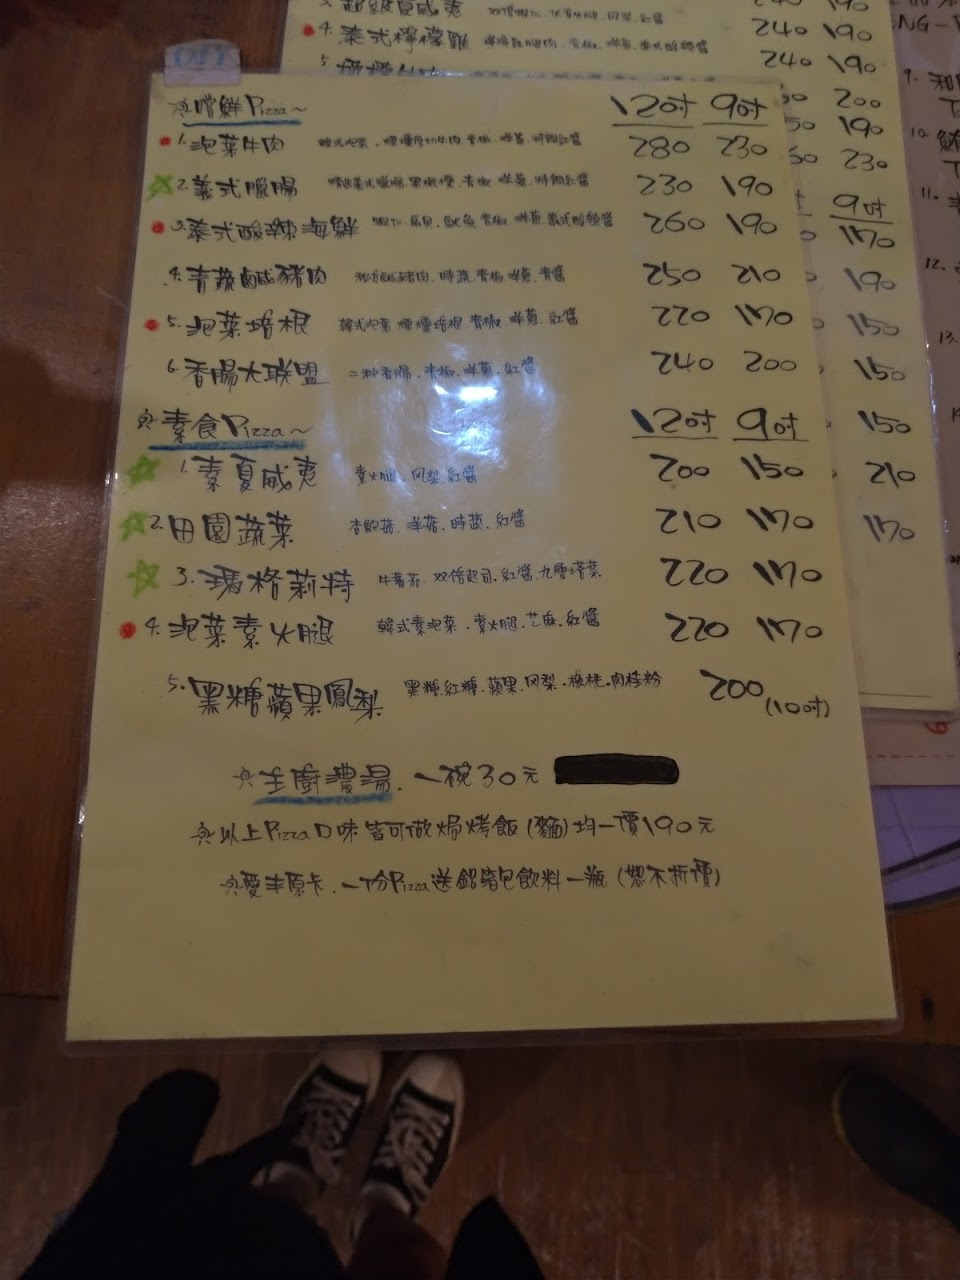 嚐鮮Pizza～ 12吋 9吋
1.泡菜牛肉 韓式泡菜、煙燻厚切牛肉、青椒、洋蔥、特調紅醬 280 230
2.義式臘腸 臘腸、黑橄欖、青椒、洋蔥、特調紅醬 230 190
3.泰式酸辣海鮮 蝦仁、扇貝、魷魚、青椒、洋蔥、泰式酸辣醬 260 190
4.青蔬鹹豬肉 鹹豬肉、時蔬、青椒、洋蔥、青醬 250 210
5.泡菜培根 韓式泡菜、煙燻培根、青椒、洋蔥、紅醬 220 170
6.香腸大联盟 二种香腸、青椒、洋蔥、紅醬 240 200
素食Pizza～ 12吋 9吋
1.素夏威夷 素火腿、凤梨、紅醬 200 150
2.田園蔬菜 杏鮑菇、洋菇、時蔬、紅醬 210 170
3.瑪格莉特 牛蕃茄、双倍起司、紅醬、九層塔葉 220 170
4.泡菜素火腿 韓式素泡菜、素火腿、芝麻、紅醬 220 170
5.黑糖蘋果鳳梨 黑糖、紅糖、蘋果、凤梨、核桃、肉桂粉 200 (10吋)
主廚濃湯. 一碗30元
以上Pizza口味皆可做焗烤飯(麵)均一價190元
愛丰原卡、一份Pizza送鋁箔包飲料一瓶(恕不折價)
泰式檸檬雞 240 190
240 190
200
190
230
9吋
170
190
150
150
150
210
170